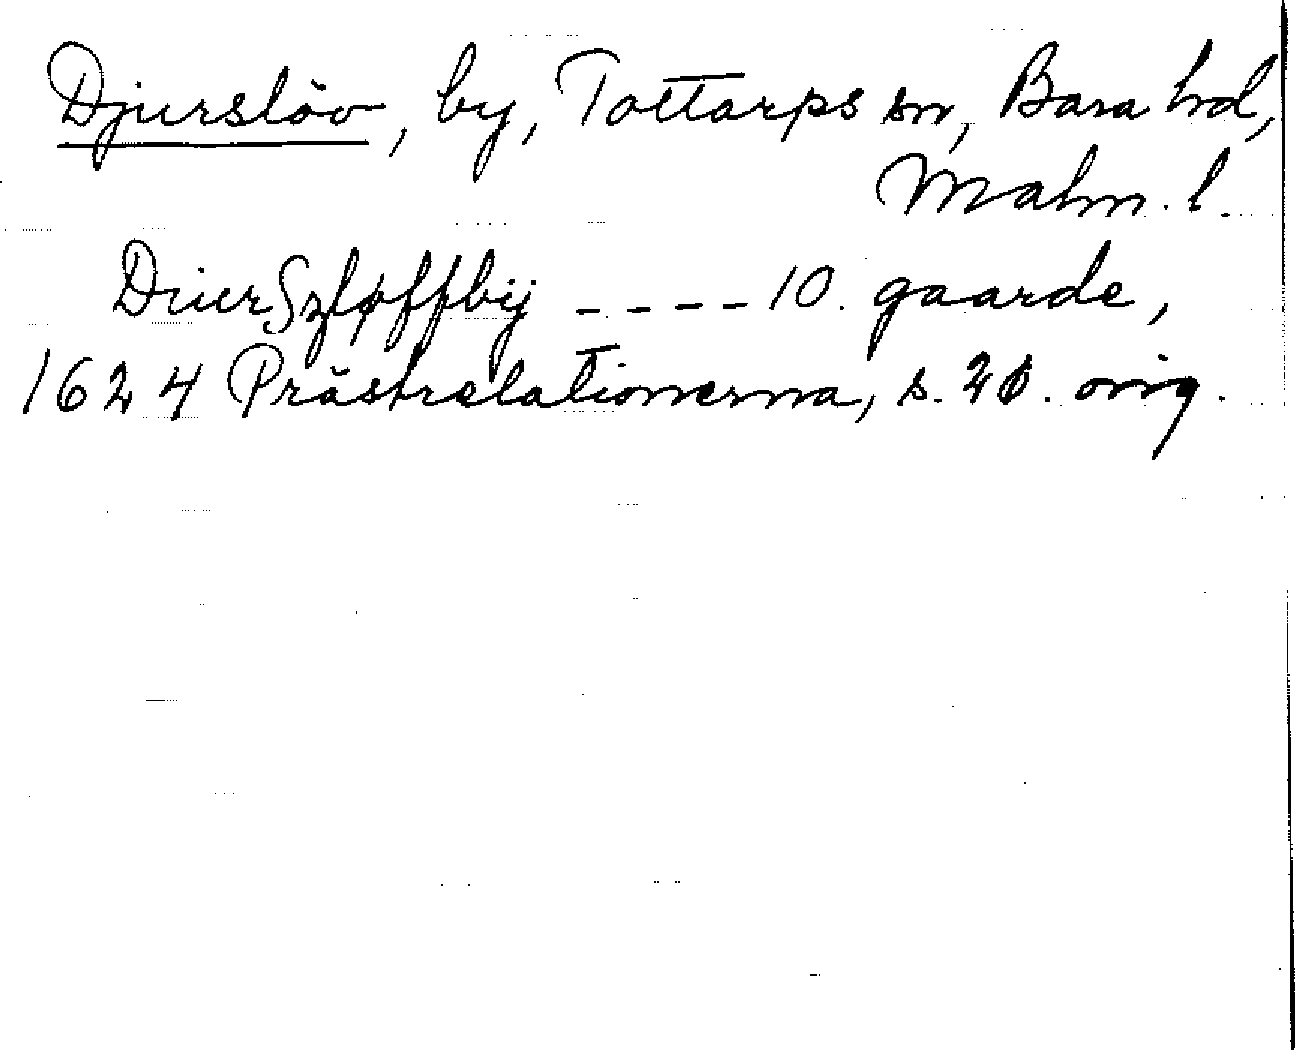 Djurslöv, by, Tottarps sn, Bara hd,
Malm. l.
DiurSzløffbÿ ---- 10. gaarde,
1624 Prästrelationerna, s. orig.